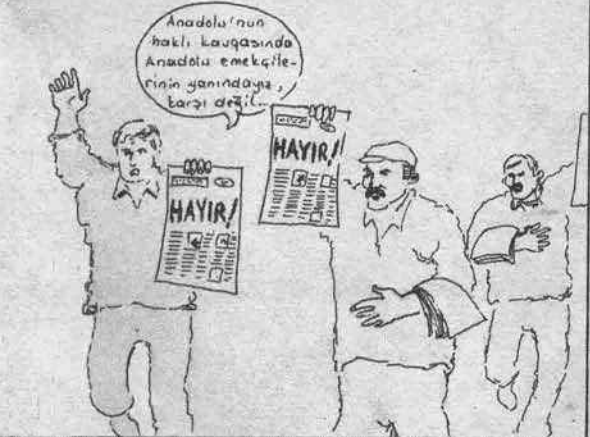 Anadolu'nun
haklı kavgasında
Anadolu emekçile-
rinin yanındayız,
karşı değil...
HAYIR!
HAYIR!